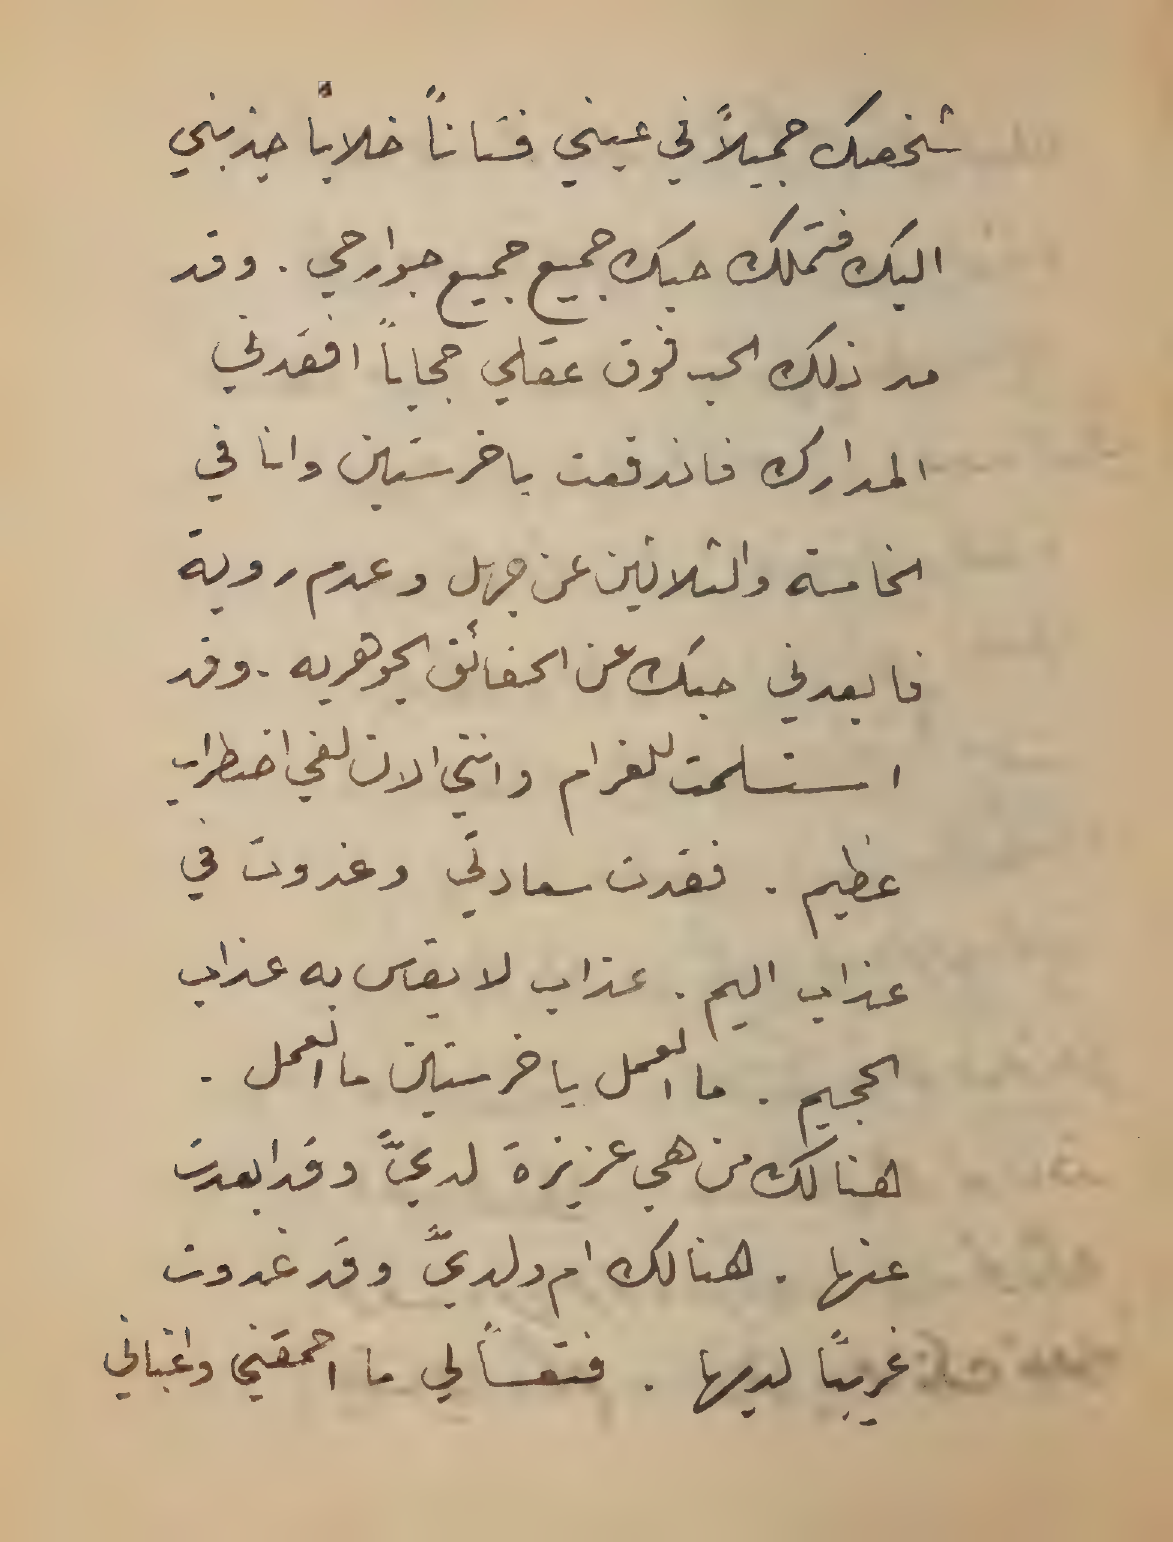 شخصك جميلاً في عيني فتاناً خلاباً جذبني
اليك فتملك حبك جميع جميع جوارحي . وقد
مد ذلك الحب فوق عقلي حجاباً افقدني
المدارك فاندفعت ياخرستين وانا في
الخامسة والثلاثين عن جهل وعدم روية
فابعدني حبك عن الحقائق الجوهريه . وقد
استسلمت للغرام وانني الان لفي اضطراب
عظيم . فقدت سعادتي وغدوت في
عذاب اليم . عذاب لا يقاس به عذاب
الجحيم . ما العمل ياخرستين ما العمل .
هنالك من هي عزيزة لديَّ وقد ابعدت
عنها . هنالك ام ولديَّ وقد غدوت
غريبًا لديها . فتعساً لي ما احمقني واغباني